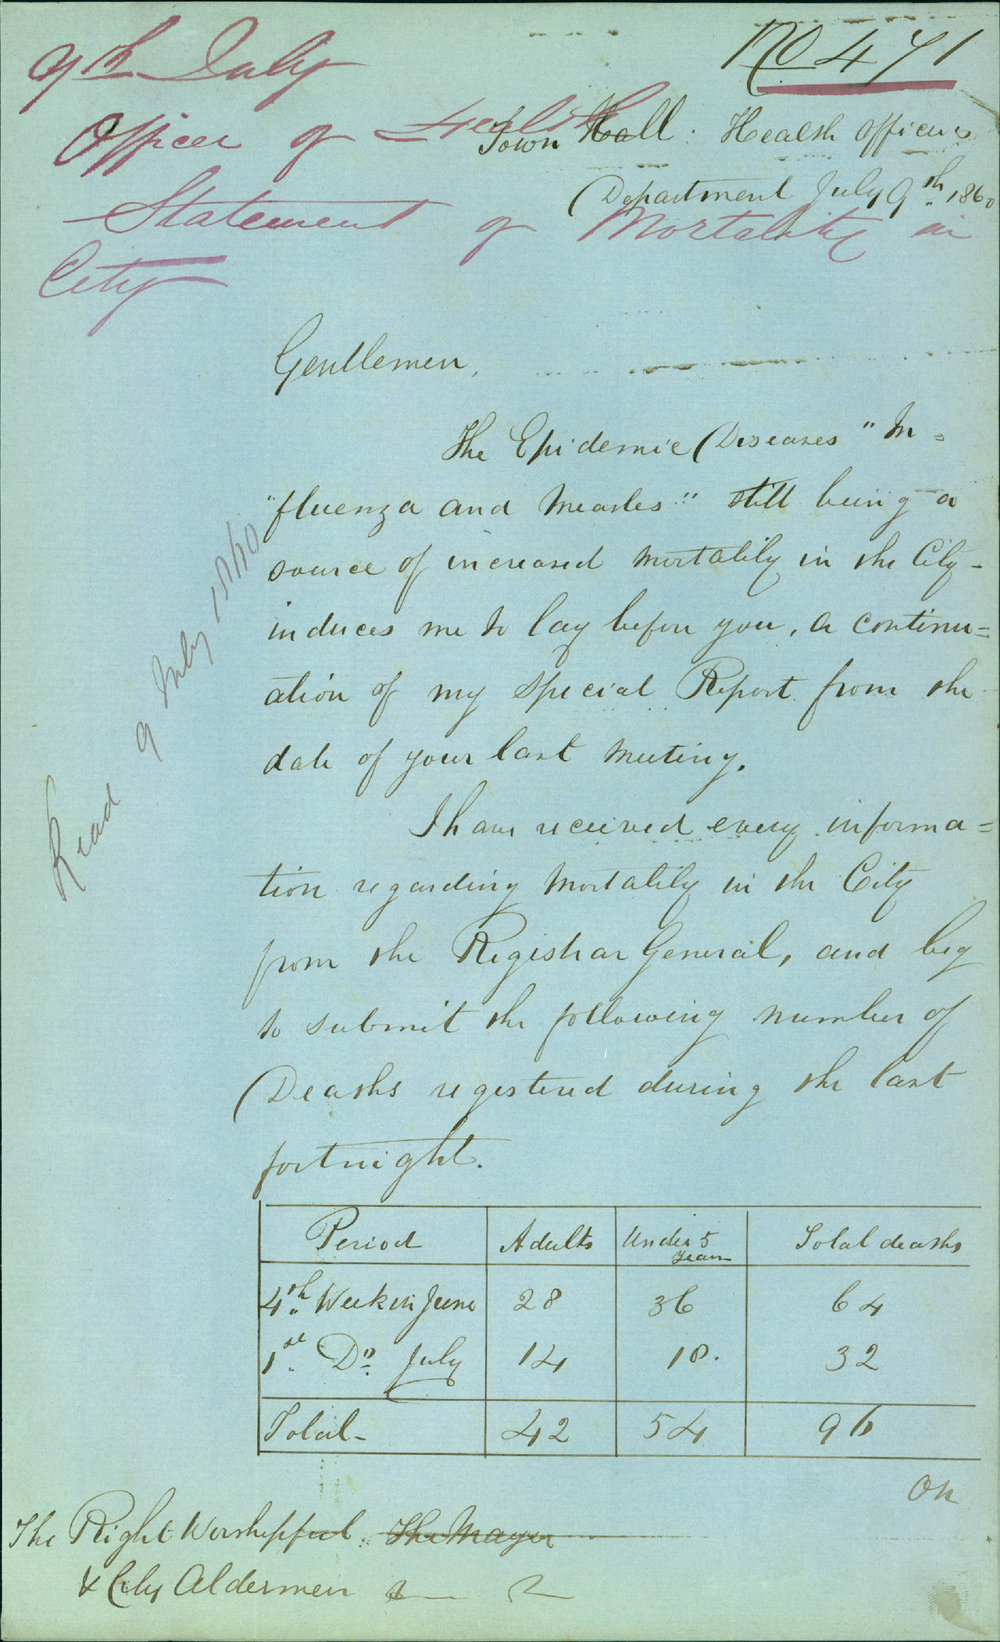 No 471
9th July
Officer of Health
Statement of Mortality in
City
Town Hall. Health Officers
Department July 9th. 1860
Gentlemen,
The Epidemic Diseases "In=
"fluenza and Measles" still being a
source of increased mortality in the City-
induces me to lay before you, a continu=
ation of my special Report from the
date of your last meeting.
I have received every informa=
tion regarding Mortality in the City
from the Registrar General, and beg
to submit the following number of
Deaths registered during the last
fortnight.
Period Adults Under 5 Years Total deaths
4th. Week in June 28 36 64
1st. Do. July 14 18. 32
Total- 42 54 96
On
The Right Worshipful The Mayor
& City Aldermen
Read 9 July 1860